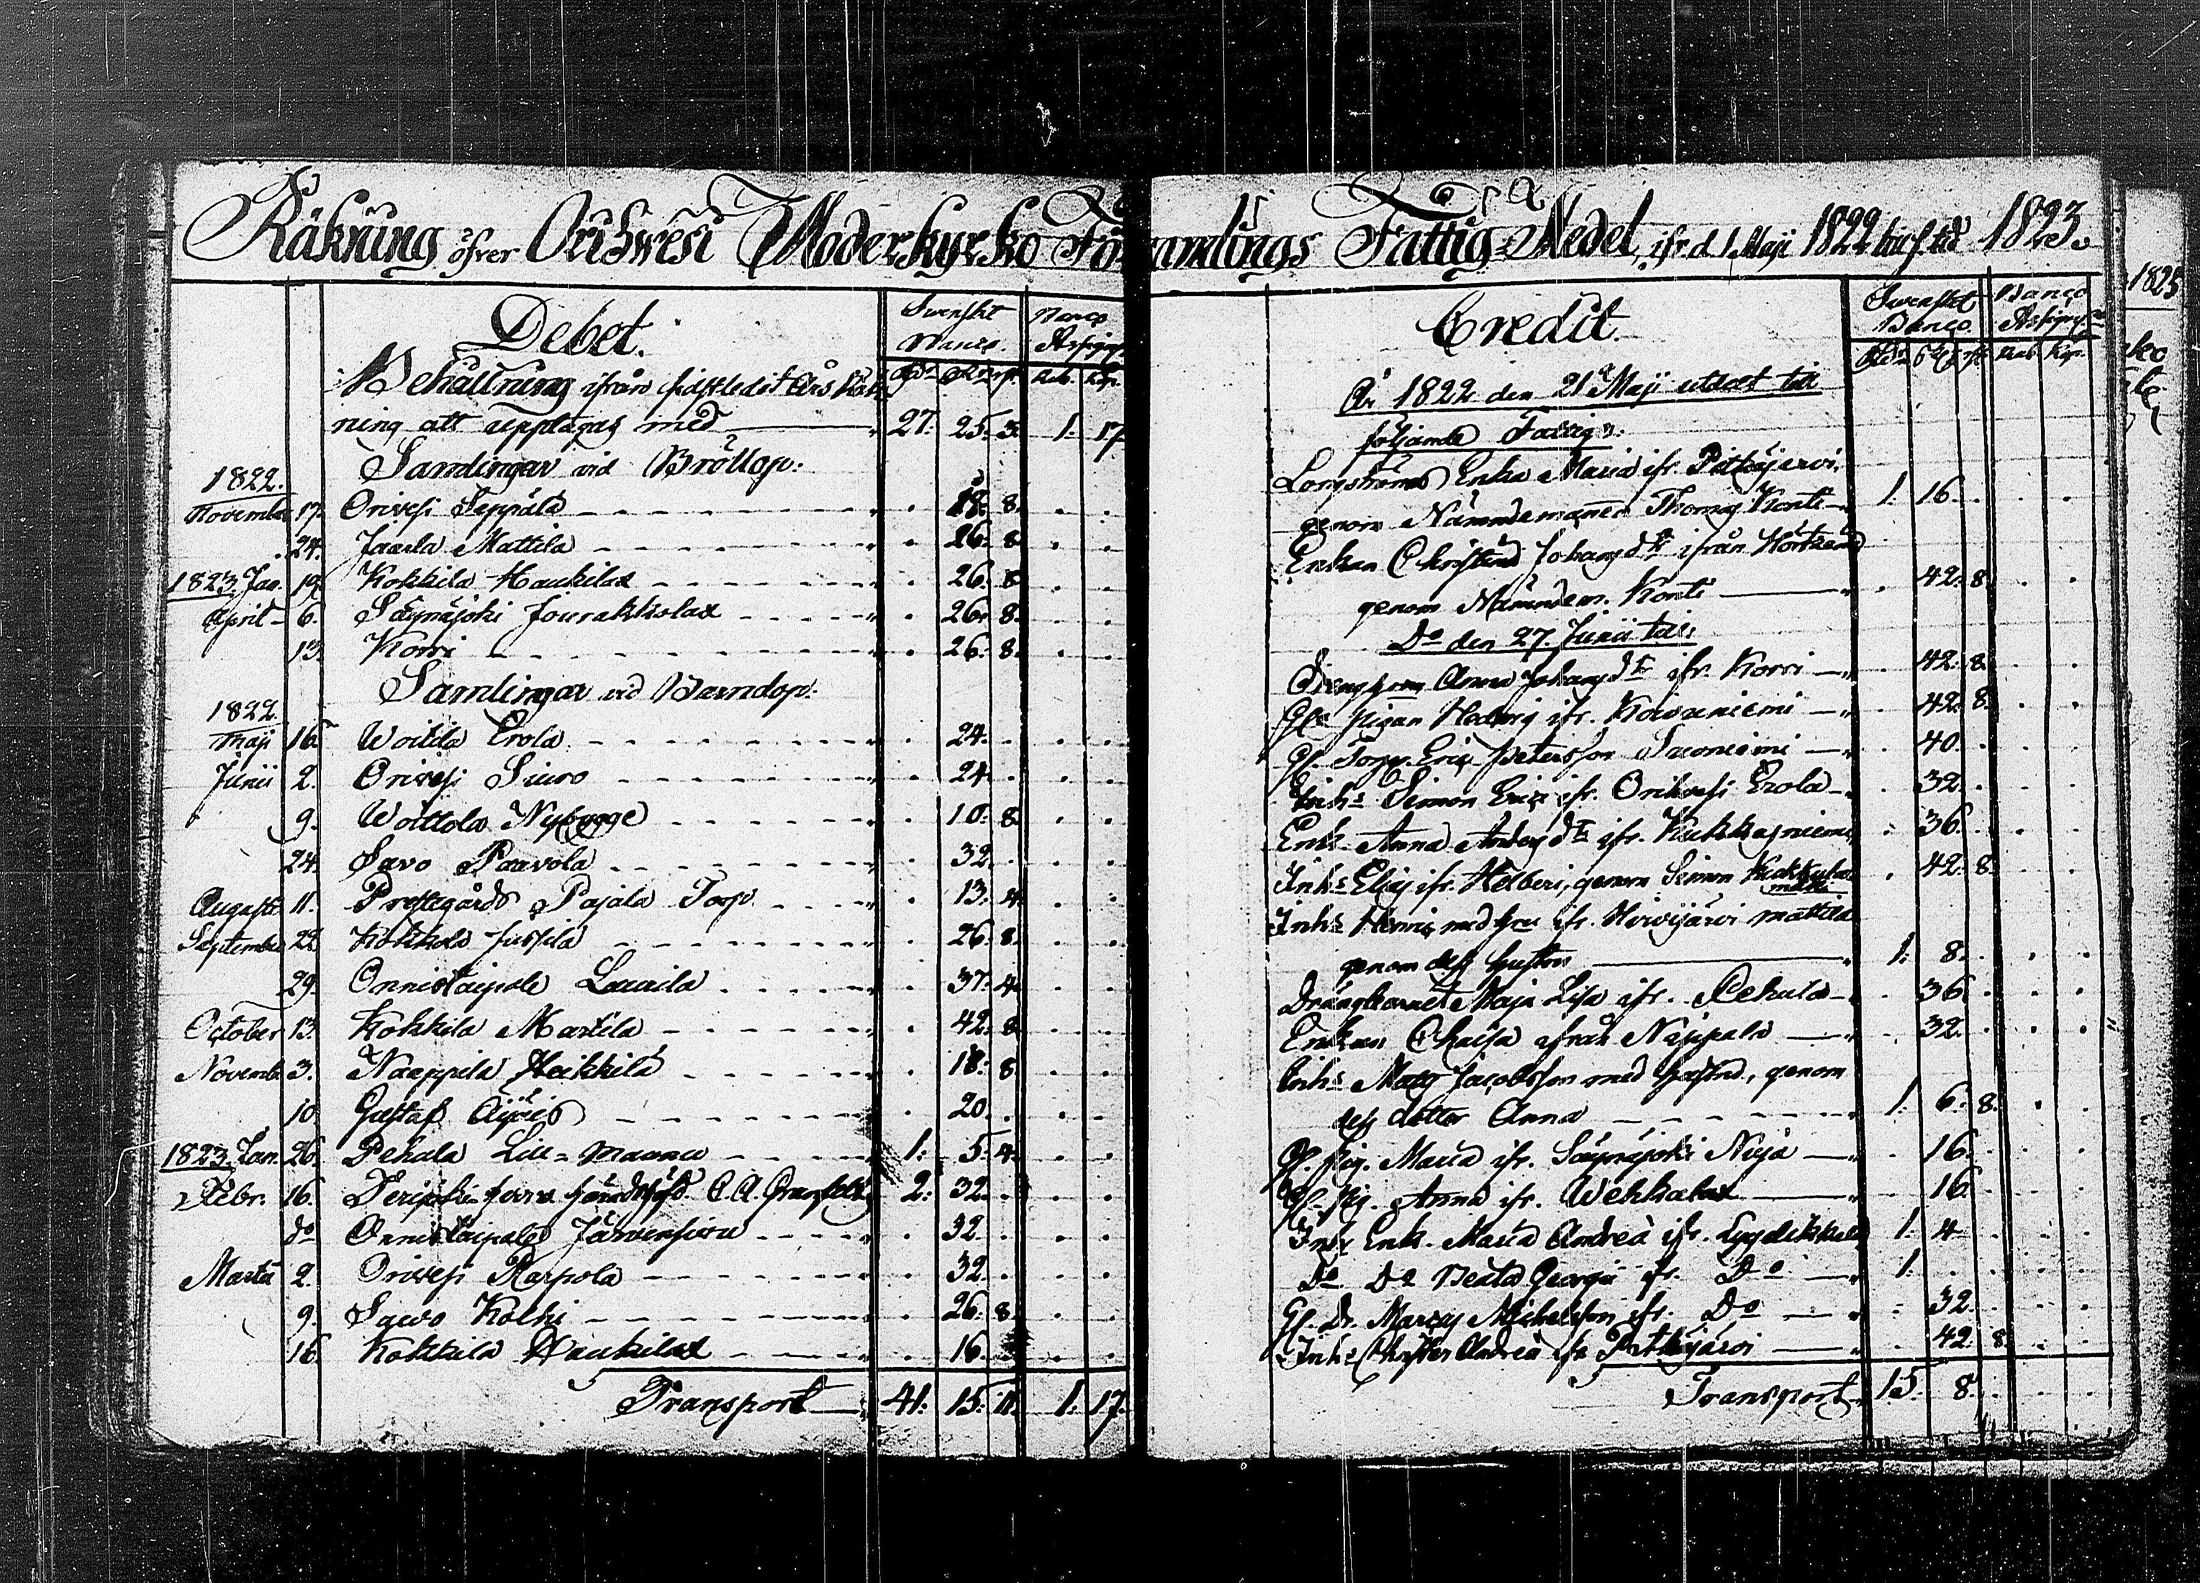 Räkning öfver Orihwesi Moderkyrko Församlings Fattig-Medel, ifr. d. 1 Maji 1822 till s. tid 1823.
Debet.
Svenskt Banco. Banco Assign.
Behållning ifrån sistledit Års Räk-
ning att upptagas med 27. 25. 3. 1. 17.
Samlingar vid Bröllop:
1822.
Novemb. 17. Orivesi Seppälä 8.
24. Jaarla Mattila 26. 8.
1823. Jan. 19. Kokkila Haukilax 26. 8.
April 6. Säynäjoki Jourakkolax 26. 8.
13. Korri 26. 8.
Samlingar vid Barndop:
1822.
Maji 16. Woitila Erola 24.
Junii 2. Orivesi Siuro 24.
9. Woittola Nybygge 10. 8.
24. Savo Paavola 32.
Augusti 11. Prestegårds Pajala Torp 13. 4.
Septembr. 22. Kokkola Jussila 26. 8.
29. Onnistaipale Laurila 37. 4.
October 13. Kokkila Martila 42. 8.
Novemb. 3. Naappila Heikkilä 18. 8.
10. Gustaf 20.
1823. Jan. 26. Pehula Lill-Maunu 1. 5. 4.
Febr. 16. C. A. 2. 32.
do Onnistaipale Järvensivu 32.
Martii 2. Orivesi Karpola 32.
9. Savo Kolhi 26. 8.
16. Kokkila Haukilax 16.
Transport 41. 15. 11. 1. 17.
Credit.
Svenskt Banco. Banco Assign.
År 1822 den 21 Maji utdelt till
följande Fattige:
Longströms Enka Maria ifr. Pitkäjervi,
genom Nämndemannen Thomas Konti 1. 16.
Enkan Christina Johansdr ifrån
genom Nämndem. Konti 42. 8.
Do den 27. Junii till:
Anna Johansdr ifr. Korri 42. 8.
Gl. pigan Hedvig ifr. Kovaniemi 42. 8.
Gl. Torp. Eric Petersson Suoniemi 40.
Inh. Simon Erici ifr. Orihvesi Erola 32.
Enk. Anna Andersdr ifr. Kukkasniemi 36.
Inh. Elias ifr. Helberi, genom Simon 42. 8.
Inh. Henric med hu. ifr. Hirvijärvi Mattila
genom dess hustru 1. 8.
Maja Lisa ifr. Pehula 36.
Enkan Chaisa ifrån Näppalä 32.
Inh. Matts Jacobsson med hustru, genom
dess dotter Anna 1. 6. 8.
Gl. pig. Maria ifr. Säynäjoki Nujä 16.
Gl. pig. Anna ifr. Wehkalax 16.
Inh. Enk. Maria Andreä ifr. 1. 4.
Do Do Beata Georgii ifr. Do 1.
Gl. Dr. Marcus Michelsson ifr. Do 32.
Inh. Christer Andreä ifr. Pitkäjärvi 42. 8.
Transport 15. 8.
1823